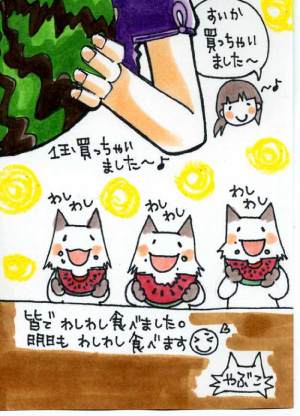 すいか
買っちゃい
ました～
1玉買っちゃい
ました～♪
わし
わし
わし
わし
わし
わし
皆でわしわし食べました。
明日もわしわし食べます
やぶこ